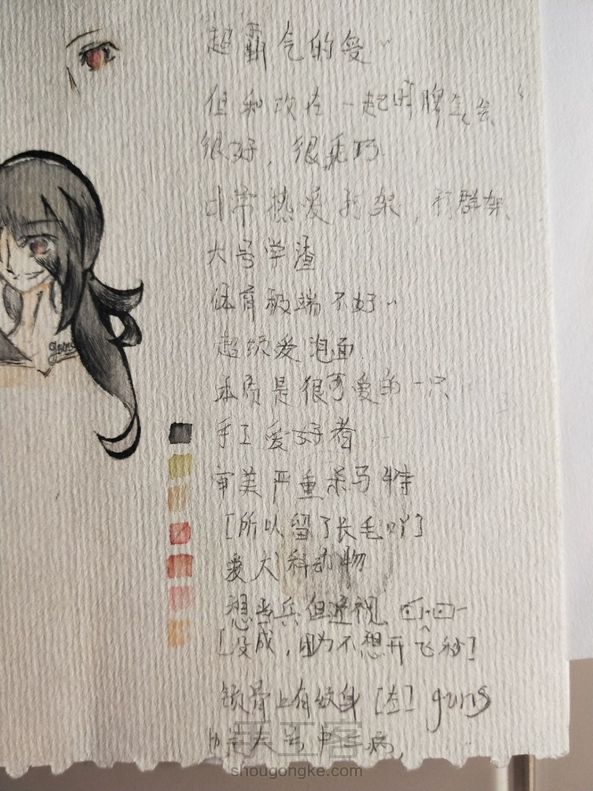 超霸气的受~
但和攻在一起时脾气会
很好，很乖巧
非常热爱打架，打群架
大号学渣
体育极端不好~
超级爱泡面
本质是很可爱的一只
手工爱好者
审美严重杀马特
[所以留了长毛吖]
爱犬科动物
想当兵但近视
[没成，因为不想开飞秒]
锁骨上有纹身[左] guns
大号中二病，
guns
手工客
shougongke.com